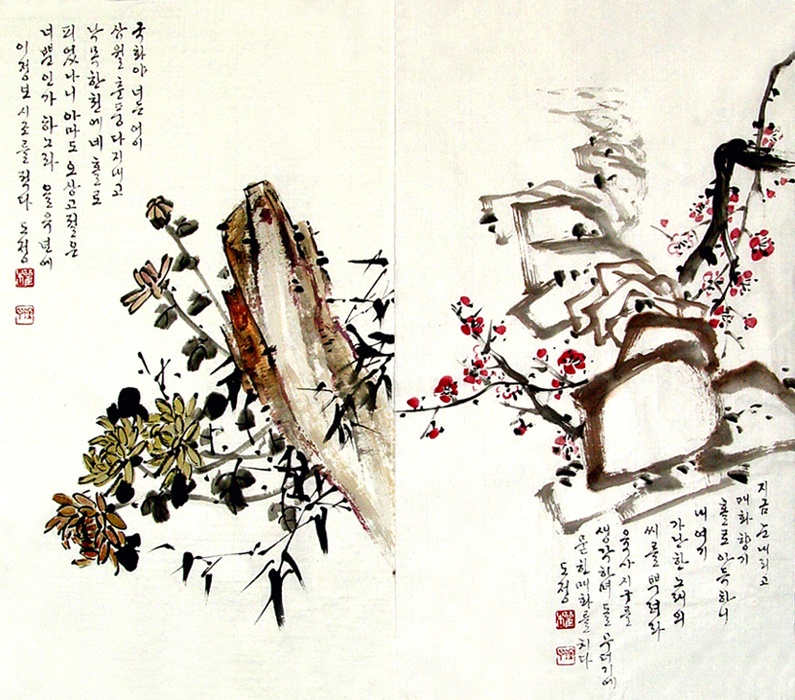 국화야 너는 어이
삼월 춘풍 다 지내고
낙목한천에 네 홀로
피었나니 아마도 오상고절은
너뿐인가 하노라 을유년에
이정보 시조를 적다 도정
지금 눈 내리고
매화 향기
홀로 아득하니
내 여기
가난한 노래의
씨를 뿌려라
육사 시구를
생각하며 돌무더기에
매화를 치다
도정